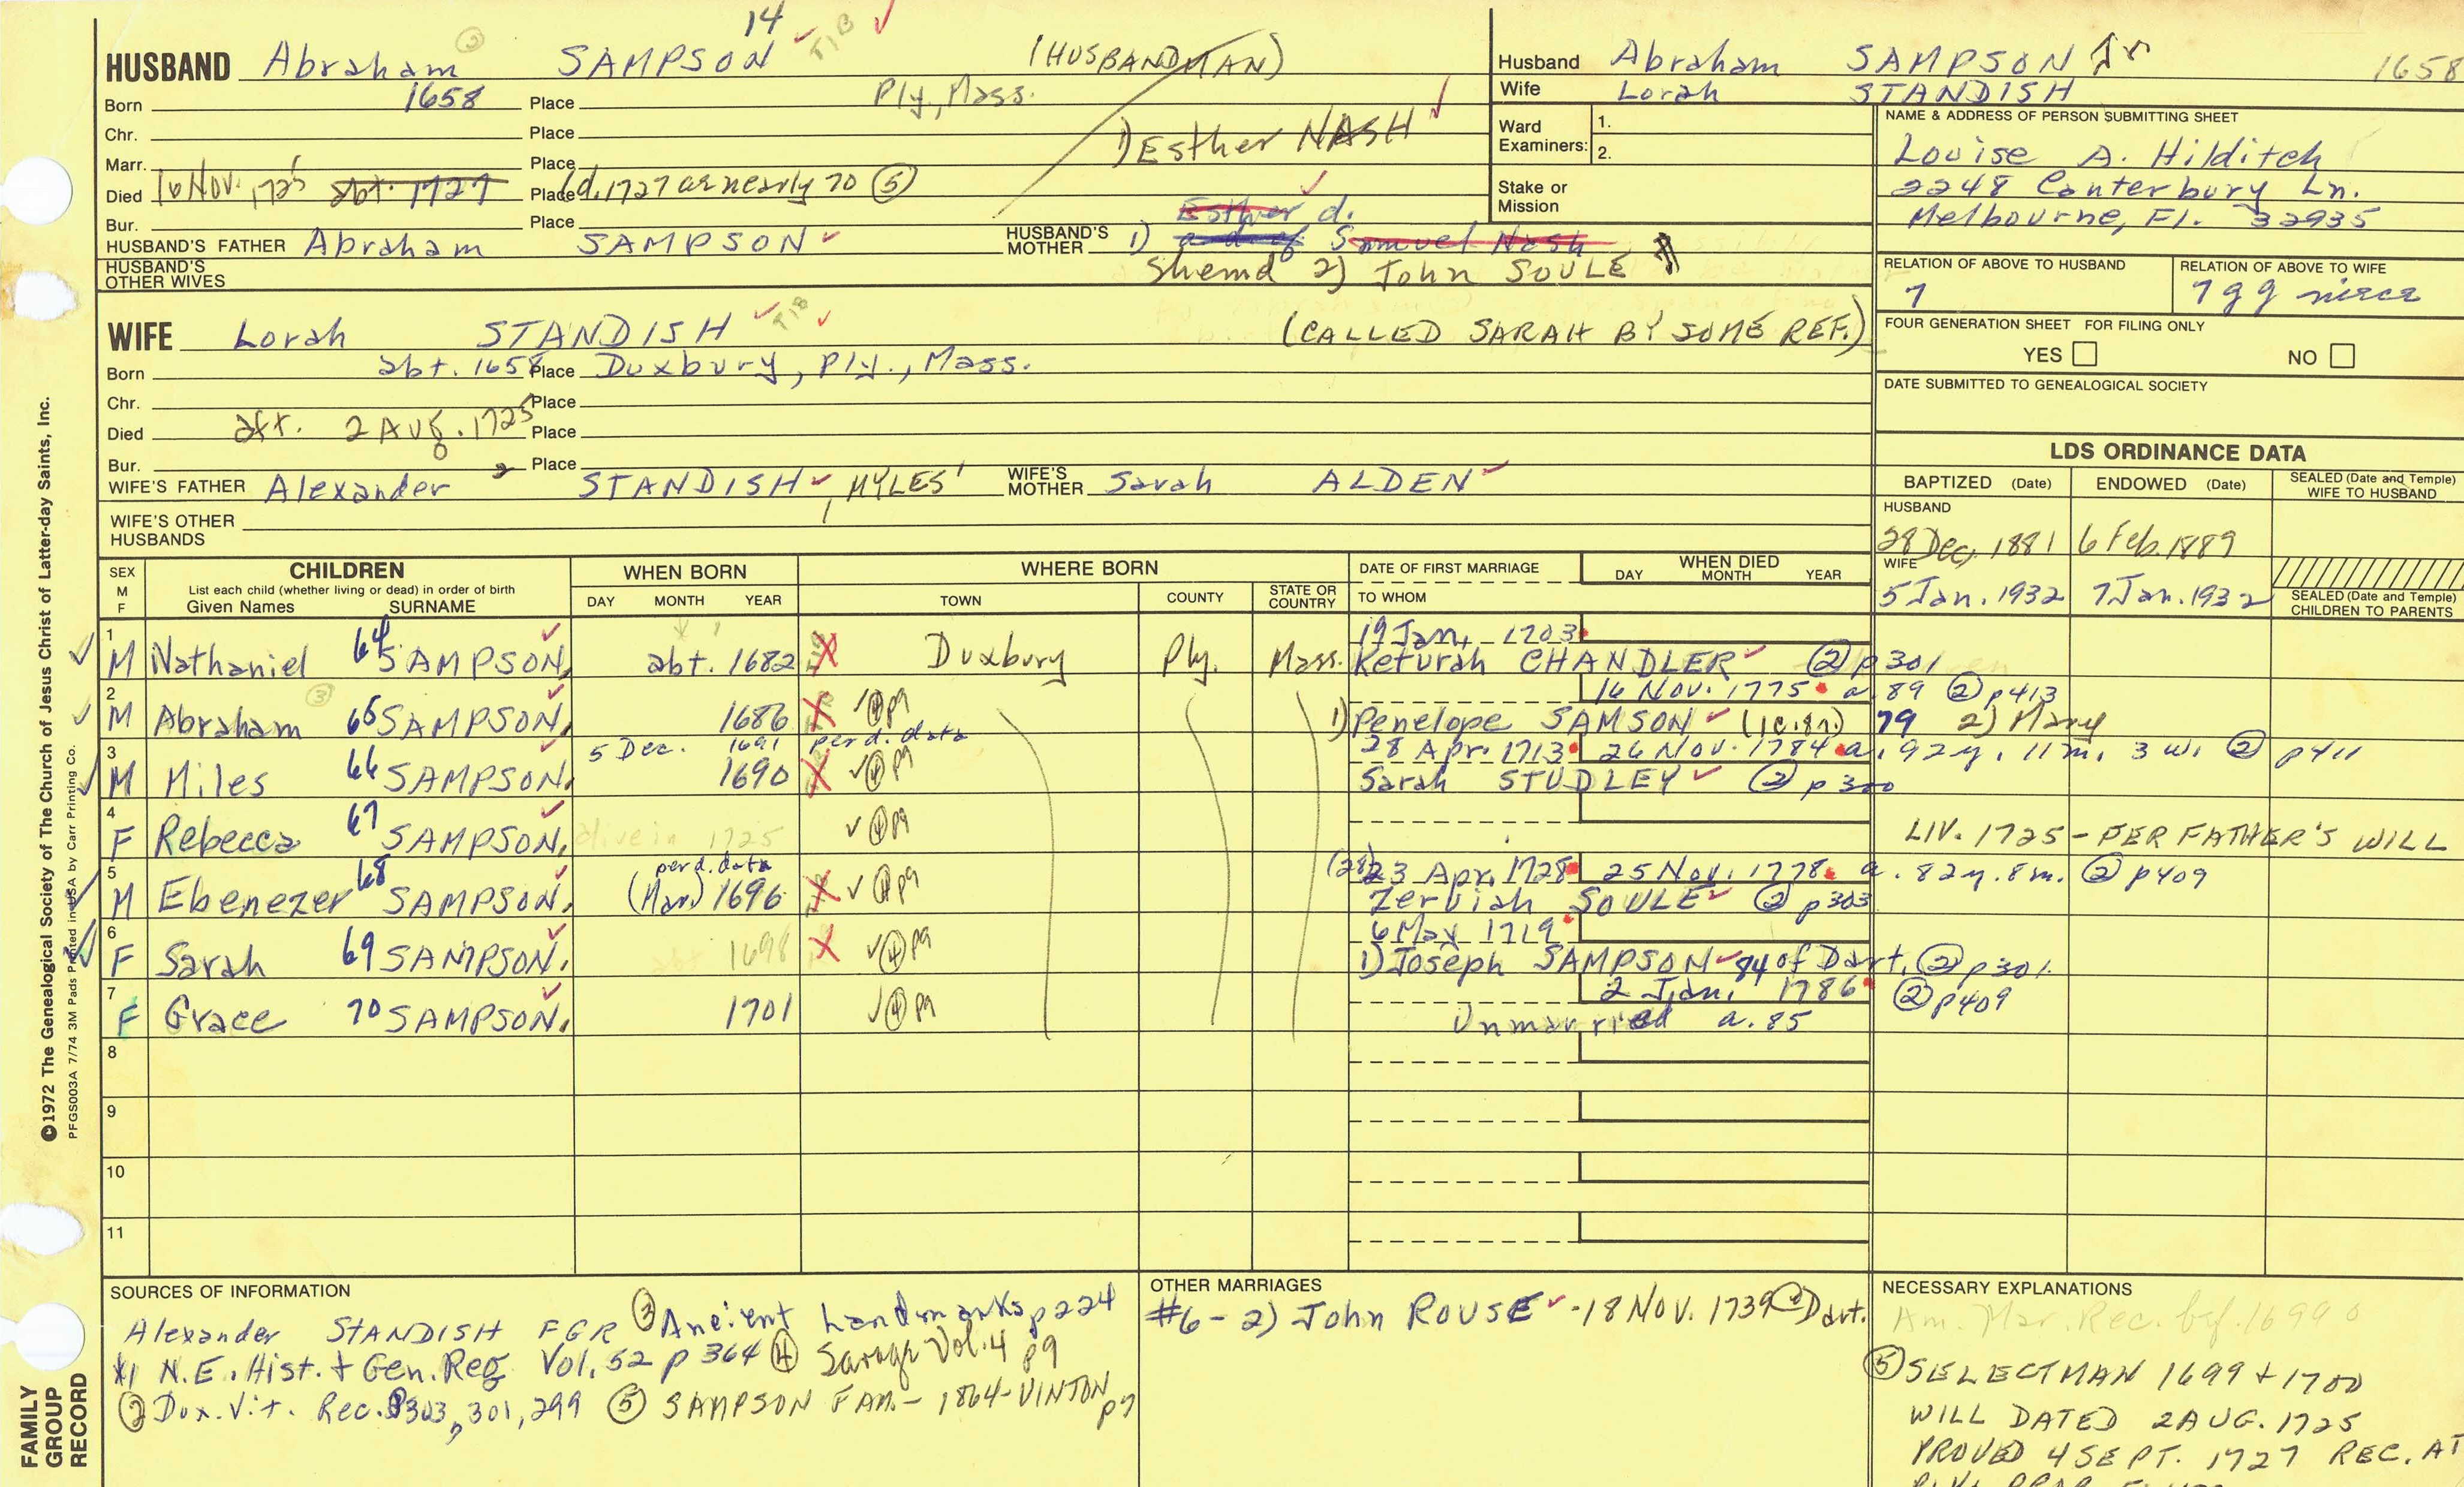 14
HUSBAND Abraham SAMPSON (HUSBANDMAN)
Born 1658 Place Ply., Mass.
Chr. Place
1) Esther NASH
Marr. Place
Died 16 Nov. 1725 abt. 1727 Place (d. 1727 ae nearly 70 (5)
Bur. Place
Esther d.
HUSBAND'S FATHER Abraham SAMPSON HUSBAND'S MOTHER 1) a d. of Samuel Nash
HUSBAND'S OTHER WIVES
Shemd 2) John SOULE
Husband Abraham SAMPSON Jr 1658
Wife Lorah STANDISH
Ward Examiners: 1.
2.
Stake or Mission
NAME & ADDRESS OF PERSON SUBMITTING SHEET
Louise A. Hilditch
2248 Canterbury Ln.
Melbourne, Fl. 32935
RELATION OF ABOVE TO HUSBAND
7
RELATION OF ABOVE TO WIFE
7gg niece
FOUR GENERATION SHEET FOR FILING ONLY
YES NO
DATE SUBMITTED TO GENEALOGICAL SOCIETY
WIFE Lorah STANDISH (CALLED SARAH BY SOME REF.)
Born abt. 1658 Place Duxbury, Ply., Mass.
Chr. Place
Died aft. 2 AUG. 1725 Place
Bur. Place
WIFE'S FATHER Alexander 2 STANDISH, MYLES 1 WIFE'S MOTHER Sarah ALDEN
WIFE'S OTHER HUSBANDS
LDS ORDINANCE DATA
BAPTIZED (Date) ENDOWED (Date) SEALED (Date and Temple) WIFE TO HUSBAND
HUSBAND
28 Dec. 1881 6 Feb. 1889
WIFE
5 Jan. 1932 7 Jan. 1932
SEALED (Date and Temple) CHILDREN TO PARENTS
SEX M F
CHILDREN
List each child (whether living or dead) in order of birth
Given Names SURNAME
WHEN BORN
DAY MONTH YEAR
WHERE BORN
TOWN COUNTY STATE OR COUNTRY
DATE OF FIRST MARRIAGE
TO WHOM
WHEN DIED
DAY MONTH YEAR
19 Jan. 1703
1 M Nathaniel 64 SAMPSON abt. 1682 Duxbury Ply. Mass. Keturah CHANDLER (2) p301
16 Nov. 1775 a. 89 (2) p413
2 M Abraham 65 SAMPSON 1686 (4) p9 1) Penelope SAMSON 79 2) Mary
5 Dec. 1691 per d. data 28 Apr. 1713 26 Nov. 1784 a. 92y. 11m. 3w. (2) p411
3 M Miles 66 SAMPSON 1690 (4) p9 Sarah STUDLEY (2) p300
4 F Rebecca 67 SAMPSON alive in 1725 (4) p9 LIV. 1725 - PER FATHER'S WILL
per d. data (28) 23 Apr. 1728 25 Nov. 1778 a. 82y. 8m. (2) p409
5 M Ebenezer 68 SAMPSON (Mar) 1696 (4) p9 Zerviah SOULE (2) p303
6 May 1719
6 F Sarah 69 SAMPSON abt 1698 (4) p9 1) Joseph SAMPSON 84 of Dart. (2) p301
2 Jan. 1786 (2) p409
7 F Grace 70 SAMPSON 1701 (4) p9 Unmarried a. 85
8
9
10
11
SOURCES OF INFORMATION
Alexander STANDISH FGR (3) Ancient Landmarks p224
#1 N.E. Hist. & Gen. Reg. Vol. 52 p 364 (4) Savage Vol. 4 p9
(2) Dux. Vit. Rec. p303, 301, 299 (5) SAMPSON FAM. - 1864 - VINTON p7
OTHER MARRIAGES
#6 - 2) John ROUSE - 18 NOV. 1739 Dart.
NECESSARY EXPLANATIONS
Am. Mar. Rec. bef. 1699
(5) SELECTMAN 1699 + 1700
WILL DATED 2 AUG. 1725
PROVED 4 SEPT. 1727 REC. AT
FAMILY GROUP RECORD
©1972 The Genealogical Society of The Church of Jesus Christ of Latter-day Saints, Inc.
PFGS003A 7/74 3M Pads Printed in USA by Carr Printing Co.